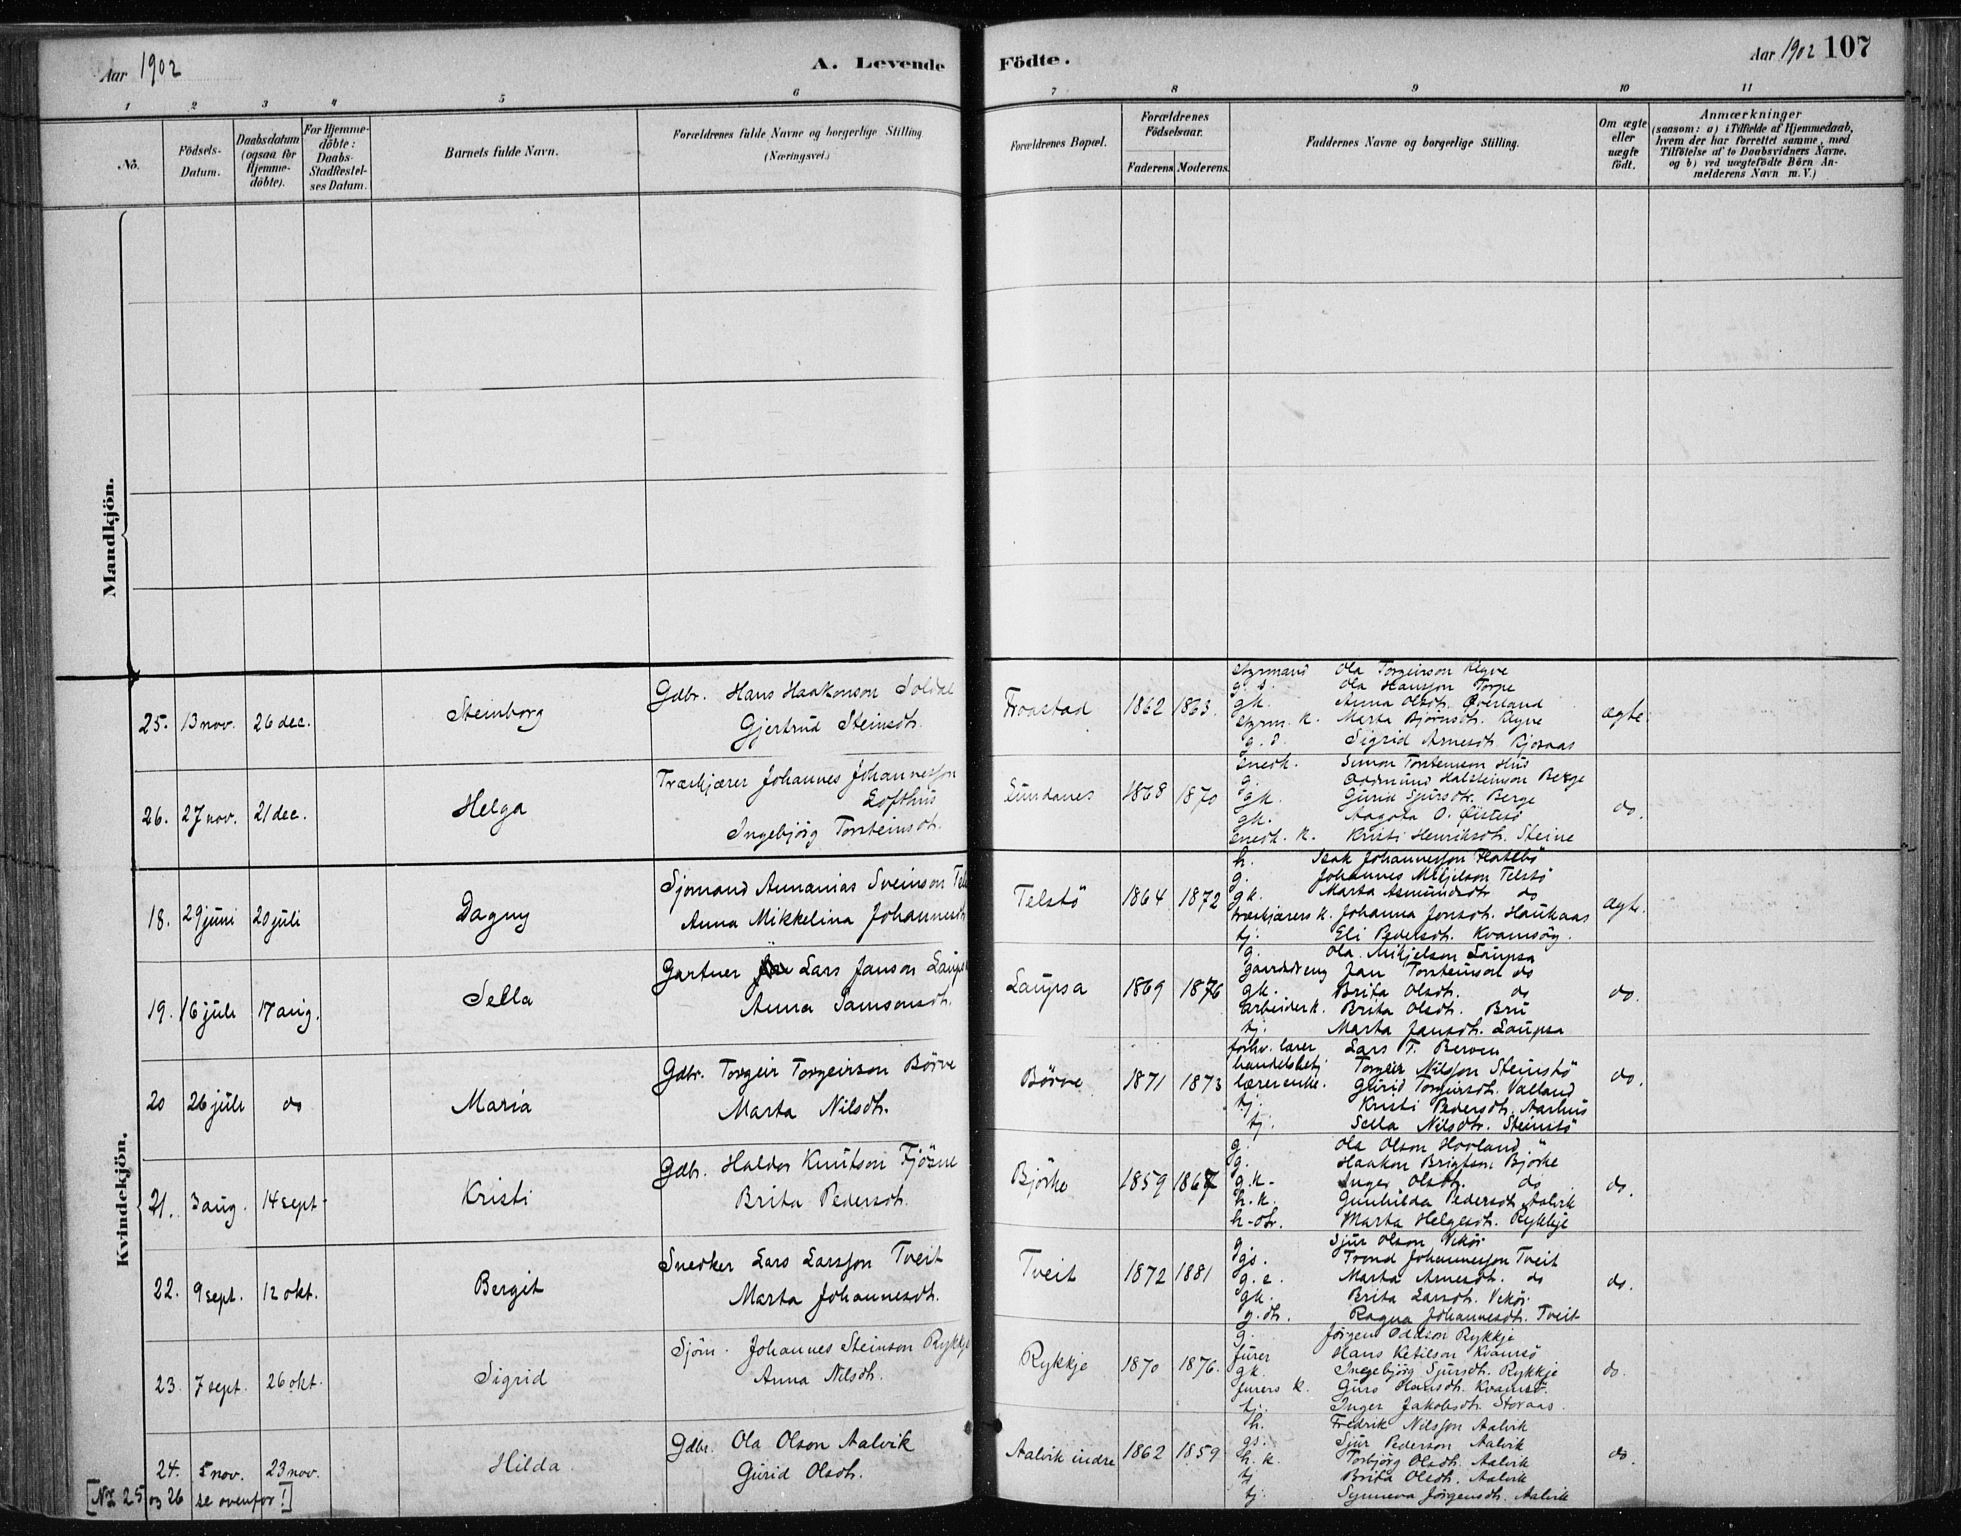 Aar 1902
A. Levende Födte.
Aar 1902 107
1 2 3 4 5 6 7 8 9 10 11
No.
Födsels-Datum.
Daabsdatum (ogsaa for Hjemme-döbte).
For Hjemme-döbte: Daabs-Stadfæstel-ses Datum.
Barnets fulde Navn.
Forældrenes fulde Navne og borgerlige Stilling (Næringsvei.)
Forældrenes Bopæl.
Forældrenes Födselsaar.
Faderens Moderens
Faddernes Navne og borgerlige Stilling.
Om ægte eller uægte födt.
Anmærkninger
(saasom: a) i Tilfælde af Hjemmedaab,
hvem der har forrettet samme, med
Tilföielse af to Daabsvidners Navne,
og b) ved uægtefödte Börn An-
melderens Navn m. V.)
Mandkjön.
25. 13 nov. 26 dec. Steinborg
Gdbr. Hans Haakonson Soldal
Gjertrud Steinsdt.
1862 1863
styrmand Ola Torgeirson
g. s. Ola Hansson Torpe
gk. Anna Olsdt.
styrm. k. Marta Bjørnsdt.
g. d. Sigrid Arnesdt.
ægte
26. 27 nov. 21 dec. Helga
Træskjærer Johannes Johannesson
Lofthus
Ingebjörg Torsteinsdt.
1868 1870
snedk. Simon Torsteinson
g. Halsteinson Berge
gk. Gurid Sjursdt. Berge
gk. Aagota O. Östesö
snedk. k. Kristi Henriksdt. Steine
do.
Kvindekjön.
18. 29 juni 20 juli Dagny
Sjømand Annanias Sveinson
Anna Mikkelina Johannesdt.
Telstö 1864 1872
h. Isak Johannesson Flatebö
g. Johannes Mikjelson Telstö
gk. Marta Asmundsdt. do
træskjærers k. Johanna Jonsdt. Haukaas
tj. Eli Pedersdt. Kvamsöy.
ægte.
19. 16 juli 17 aug. Sella
Gartner Lars Janson
Anna Samsonsdt.
Laupsa 1869 1876
g. Ola Mikjelson Laupsa
gaardsdreng Jan Torsteinson do
gk. Brita Olsdt. do
arbeider k. Brita Olsdt. Bru
tj. Marta Jansdt. Laupsa
do.
20 26 juli do Maria
Gdbr. Torgeir Torgeirson Börve
Marta Nilsdt.
Börve 1871 1873
forhv. lærer Lars T. Berven
handelsbetj Torgeir Nilsson Steinstö
lærerenke. Gurid Torgeirsdt. Valland
tj. Kristi Pedersdt. Aarhus
tj. Sella Nilsdt. Steinstö
do.
21. 3 aug. 14 sept. Kristi
Gdbr. Haldor Knutson Fjösne
Brita Pedersdt.
Björke 1859 1867
g. Ola Olson Hovland
g. Haakon Brigtson Björke
g.k. Inger Olsdt. do
h.k. Gunhilda Pedersdt. Aalvik
h-dtr. Marta Helgesdt. Rykkje
do.
22. 9 sept. 12 okt. Bergit
Snedker Lars Larsson Tveit
Marta Johannesdt.
Tveit 1872 1881
g Sjur Olson Vikör
gs. Trond Johannesson Tveit
g. e. Marta Arnesdt. do
gk. Brita Larsdt. Vikör
g. dt. Ragna Johannesdt. Tveit
do.
23. 7 sept. 26 okt. Sigrid
Sjöm. Johannes Steinson Rykkje
Anna Nilsdt.
Rykkje 1870 1876.
g. Jörgen Oddson Rykkje
furer Hans Ketilson Kvamsö
gk. Ingebjörg Sjursdt. Rykkje
furers k. Guro Hansdt. Kvamsö
tj. Inger Jakobsdt. Storaas.
do.
24. 5 nov. 23 nov. Hilda
Gdbr. Ola Olson Aalvik
Gurid Olsdt.
Aalvik indre 1862 1859
h. Fredrik Nilsson Aalvik
gs. Sjur Pederson Aalvik
h. k. Torbjörg Olsdt. Aalvik
tj Brita Olsdt. Aalvik
tj. Synneva Jörgensdt. Aalvik
do.
[No 25 og 26 se ovenfor!]